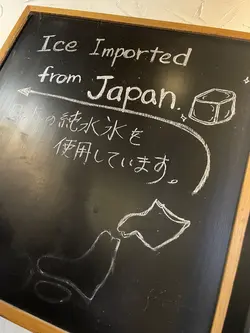 Ice Imported
from Japan.
の純氷氷を
使用しています。